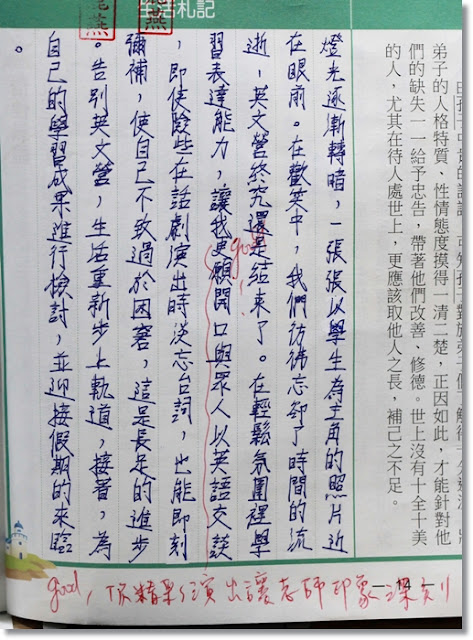 生活札記
弟子的人格特質、性情態度摸得一清二楚,正因如此,才能針對他
們的缺失一一給予忠告,帶著他們改善、修德。世上沒有十全十美
的人,尤其在待人處世上,更應該取他人之長,補己之不足。
燈光逐漸轉暗,一張張以學生為主角的照片近
在眼前。在歡笑中,我們彷彿忘卻了時間的流
逝,英文營終究還是結束了。在輕鬆氛圍裡學
習表達能力,讓我更願開口與眾人以英語交談
good!
,即使險些在話劇演出時淡忘台詞,也能即刻
彌補,使自己不致過於困窘,這是長足的進步
。告別英文營,生活重新步上軌道,接著,為
自己的學習成果進行檢討,並迎接假期的來臨
。
good, 你精彩演出讓老師印象深刻!
14